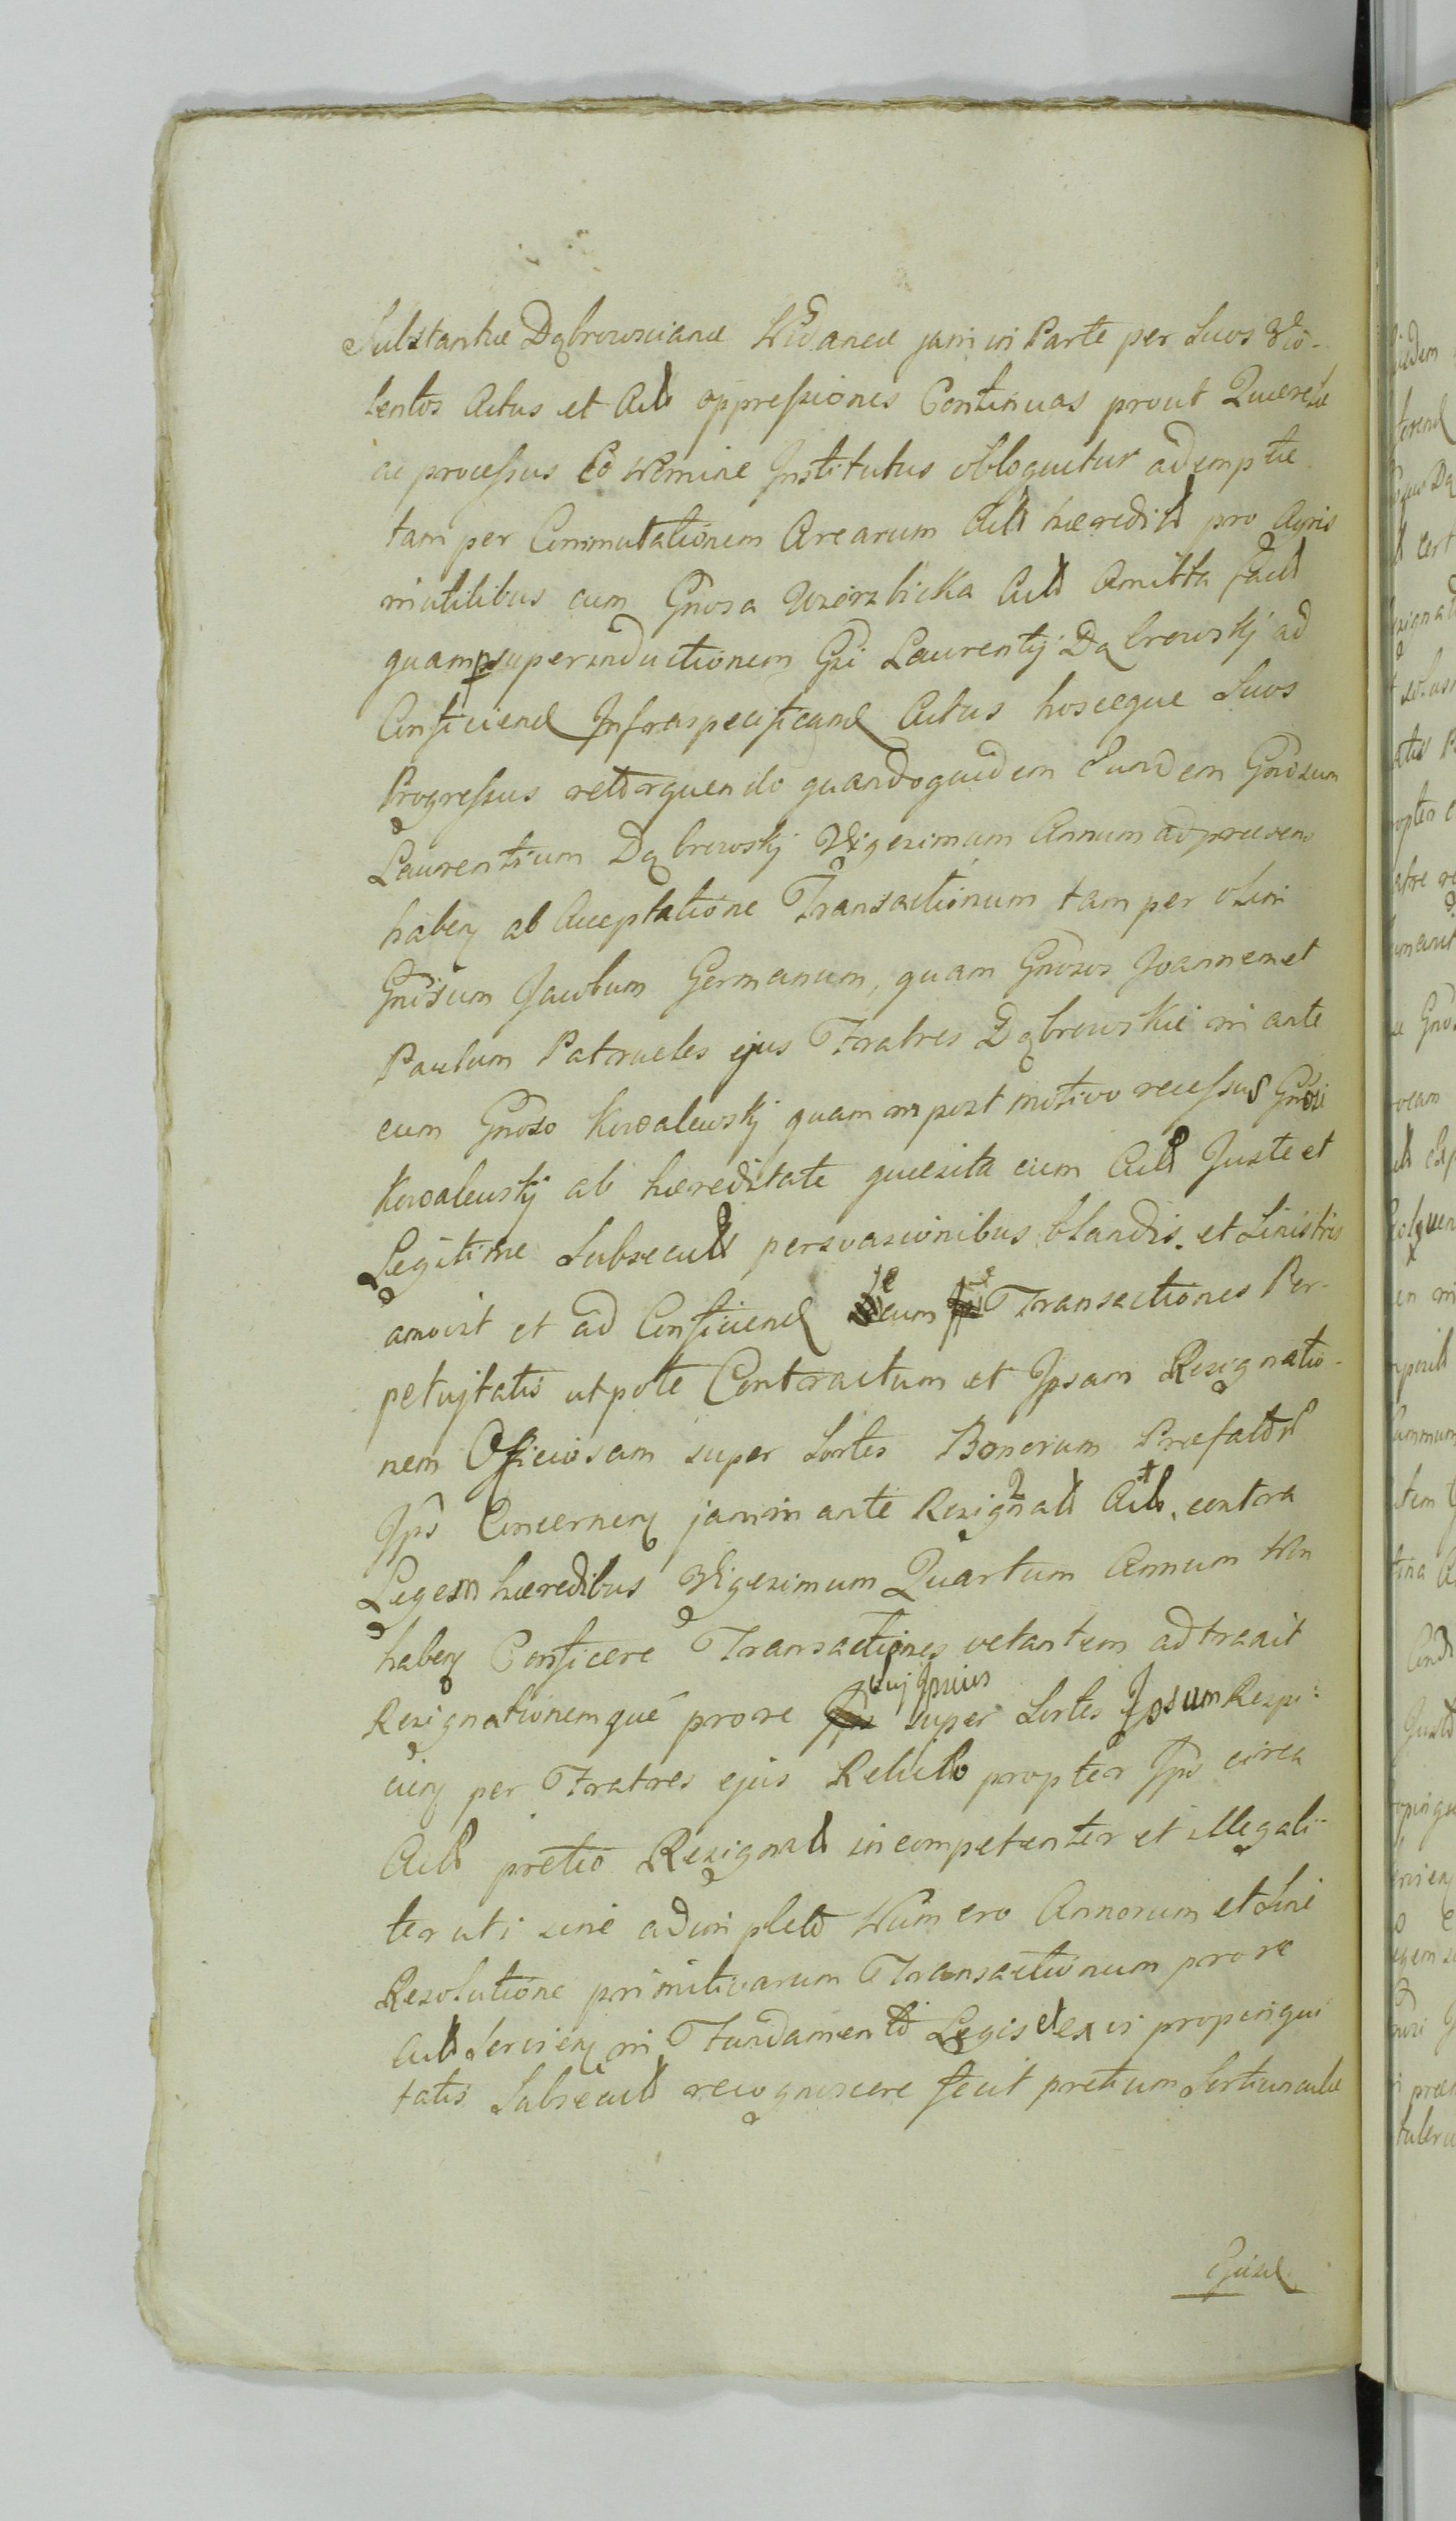 Substantiæ Dąbrowscianæ Widanæ jam in Parte per Suos Vio-
lentos Actus et Act oppressiones Continuas prout Querelæ
ac processus Eo Nomine Institutus obloquitur ademptæ
tam per Commutationem Arearum Act hæredit pro Agris
inutilibus cum Gnosa Wierzbicka Act Amitta fact
quam superinductionem Gsi Laurentij Dąbrowskj ad
Conficiend Infraspecificand Actus hosceque Suos
Progressus retorquendo quandoquidem Eundem Gnosum
Laurentium Dąbrowskj Vigesimum Annum ad præsens
haben ab Acceptatione Transactionum tam per olim
Gnosum Jacobum Germanum, quam Gnosos Joannem et
Paulum Patrueles ejus Fratres Dąbrowskie in ante
cum Gnoso Kowalewskj quam in post motivo recessus Gnosi
Kowalewskj ab hæreditate quæsita cum Act Juste et
Legitime Subsecut persvasionibus blandis. et Sinistris
amovit et ad Conficiend Secum Transactiones Per-
petujtatis utpote Contractum et Ipsam Resignatio-
nem Officiosam super Sortes Bonorum Præfat
Ips Concernen jam in ante Resignat Act, contra
Legem hæredibus Vigesimum Quartum Annum Non
haben Conficere Transactiones vetantem adtraxit
Resignationemque pro re suj Ipsius super Sortes Ipsum Respi-
cien per Fratres ejus Relicto propter Ips circa
Act pretio Resignat incompetenter et illegali-
ter uti sine adimpleto Numero Annorum et Sine
Resolutione primitivarum Transactionum pro re
Act Servien in Fundamento Legis et ex vi propinqui
tatis Subsecut recognoscere fecit pretium Sortiunculæ
Ejusd